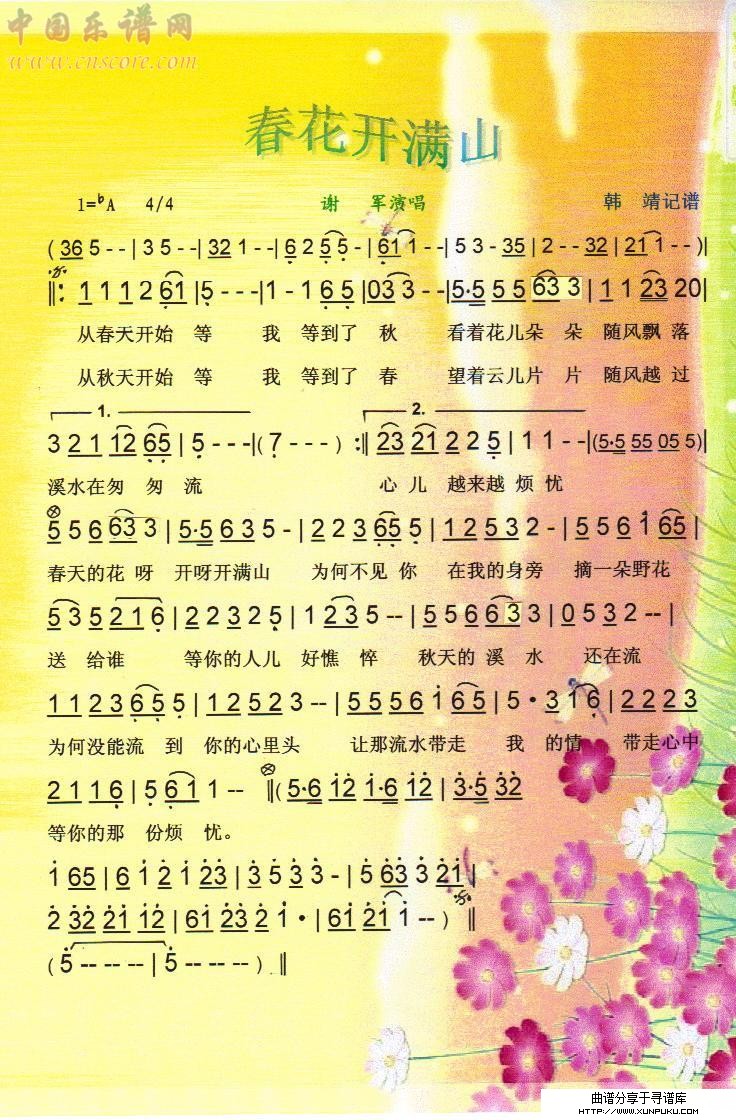 中国乐谱网
www.cnscore.com
春花开满山
1=♭A 4/4 谢 军演唱 韩 靖记谱
( 36 5 - - | 3 5 - - | 32 1 - - | 6 2 5 5 - | 61 1 - - | 5 3 - 35 | 2 - - 32 | 21 1 - - )|
‖: 1 1 1 2 61 | 5 - - - | 1 - 1 6 5 | 03 3 - - | 5·5 5 5 63 3 | 1 1 23 20 |
从春天开始 等 我 等到了 秋 看着花儿朵 朵 随风飘 落
从秋天开始 等 我 等到了 春 望着云儿片 片 随风越 过
1. 2.
3 2 1 12 65 | 5 - - - | ( 7 - - - ) :‖ 23 21 2 2 5 | 1 1 - - | (5·5 55 05 5)|
溪水在匆 匆 流 心 儿 越来越 烦 忧
5 5 6 63 3 | 5·5 6 3 5 - | 2 2 3 65 5 | 1 2 5 3 2 - | 5 5 6 1 65 |
春天的花 呀 开呀开满山 为何不见 你 在我的身旁 摘一朵野花
5 3 5 2 1 6 | 2 2 3 2 5 | 1 2 3 5 - - | 5 5 6 6 3 3 | 0 5 3 2 - - |
送 给谁 等你的人儿 好憔 悴 秋天的 溪 水 还在流
1 1 2 3 6 5 5 | 1 2 5 2 3 - - | 5 5 5 6 1 6 5 | 5 · 3 1 6 | 2 2 2 3
为何没能流 到 你的心里头 让那流水带走 我 的情 带走心中
2 1 1 6 | 5 6 1 1 - - ‖( 5·6 12 1·6 12 | 3·5 32
等你的那 份烦 忧。
1 65 | 6 1 2 1 23 | 3 5 3 3 - | 5 63 3 21 |
2 32 21 12 | 61 23 2 1 · | 61 21 1 - - ) ‖
( 5 - - - - | 5 - - - - ) ‖
曲谱分享于寻谱库
HTTP://WWW.XUNPUKU.COM